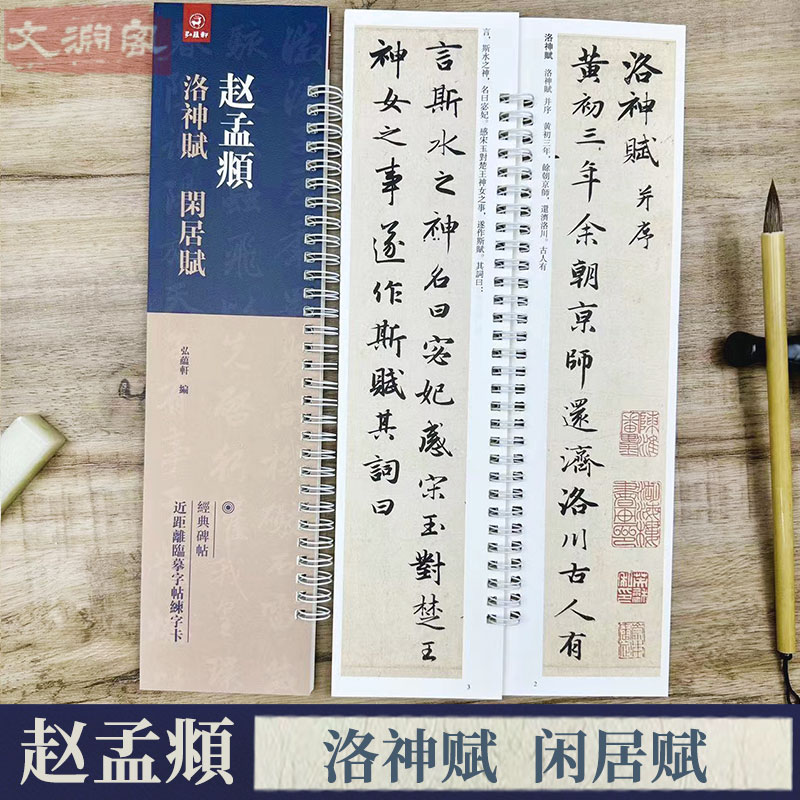 弘蘊軒
赵孟頫
洛神賦 閑居賦
弘蘊軒 編
經典碑帖
近距離臨摹字帖練字卡
洛神賦 洛神賦 并序 黃初三年，餘朝京師，還濟洛川。古人有
洛神賦 并序
黄初三年余朝京師還濟洛川古人有
2
言，斯水之神，名曰宓妃。感宋玉對楚王神女之事，遂作斯賦。其詞曰：
言斯水之神名曰宓妃感宋玉對楚王
神女之事遂作斯賦其詞曰
3
赵孟頫 洛神赋 闲居赋